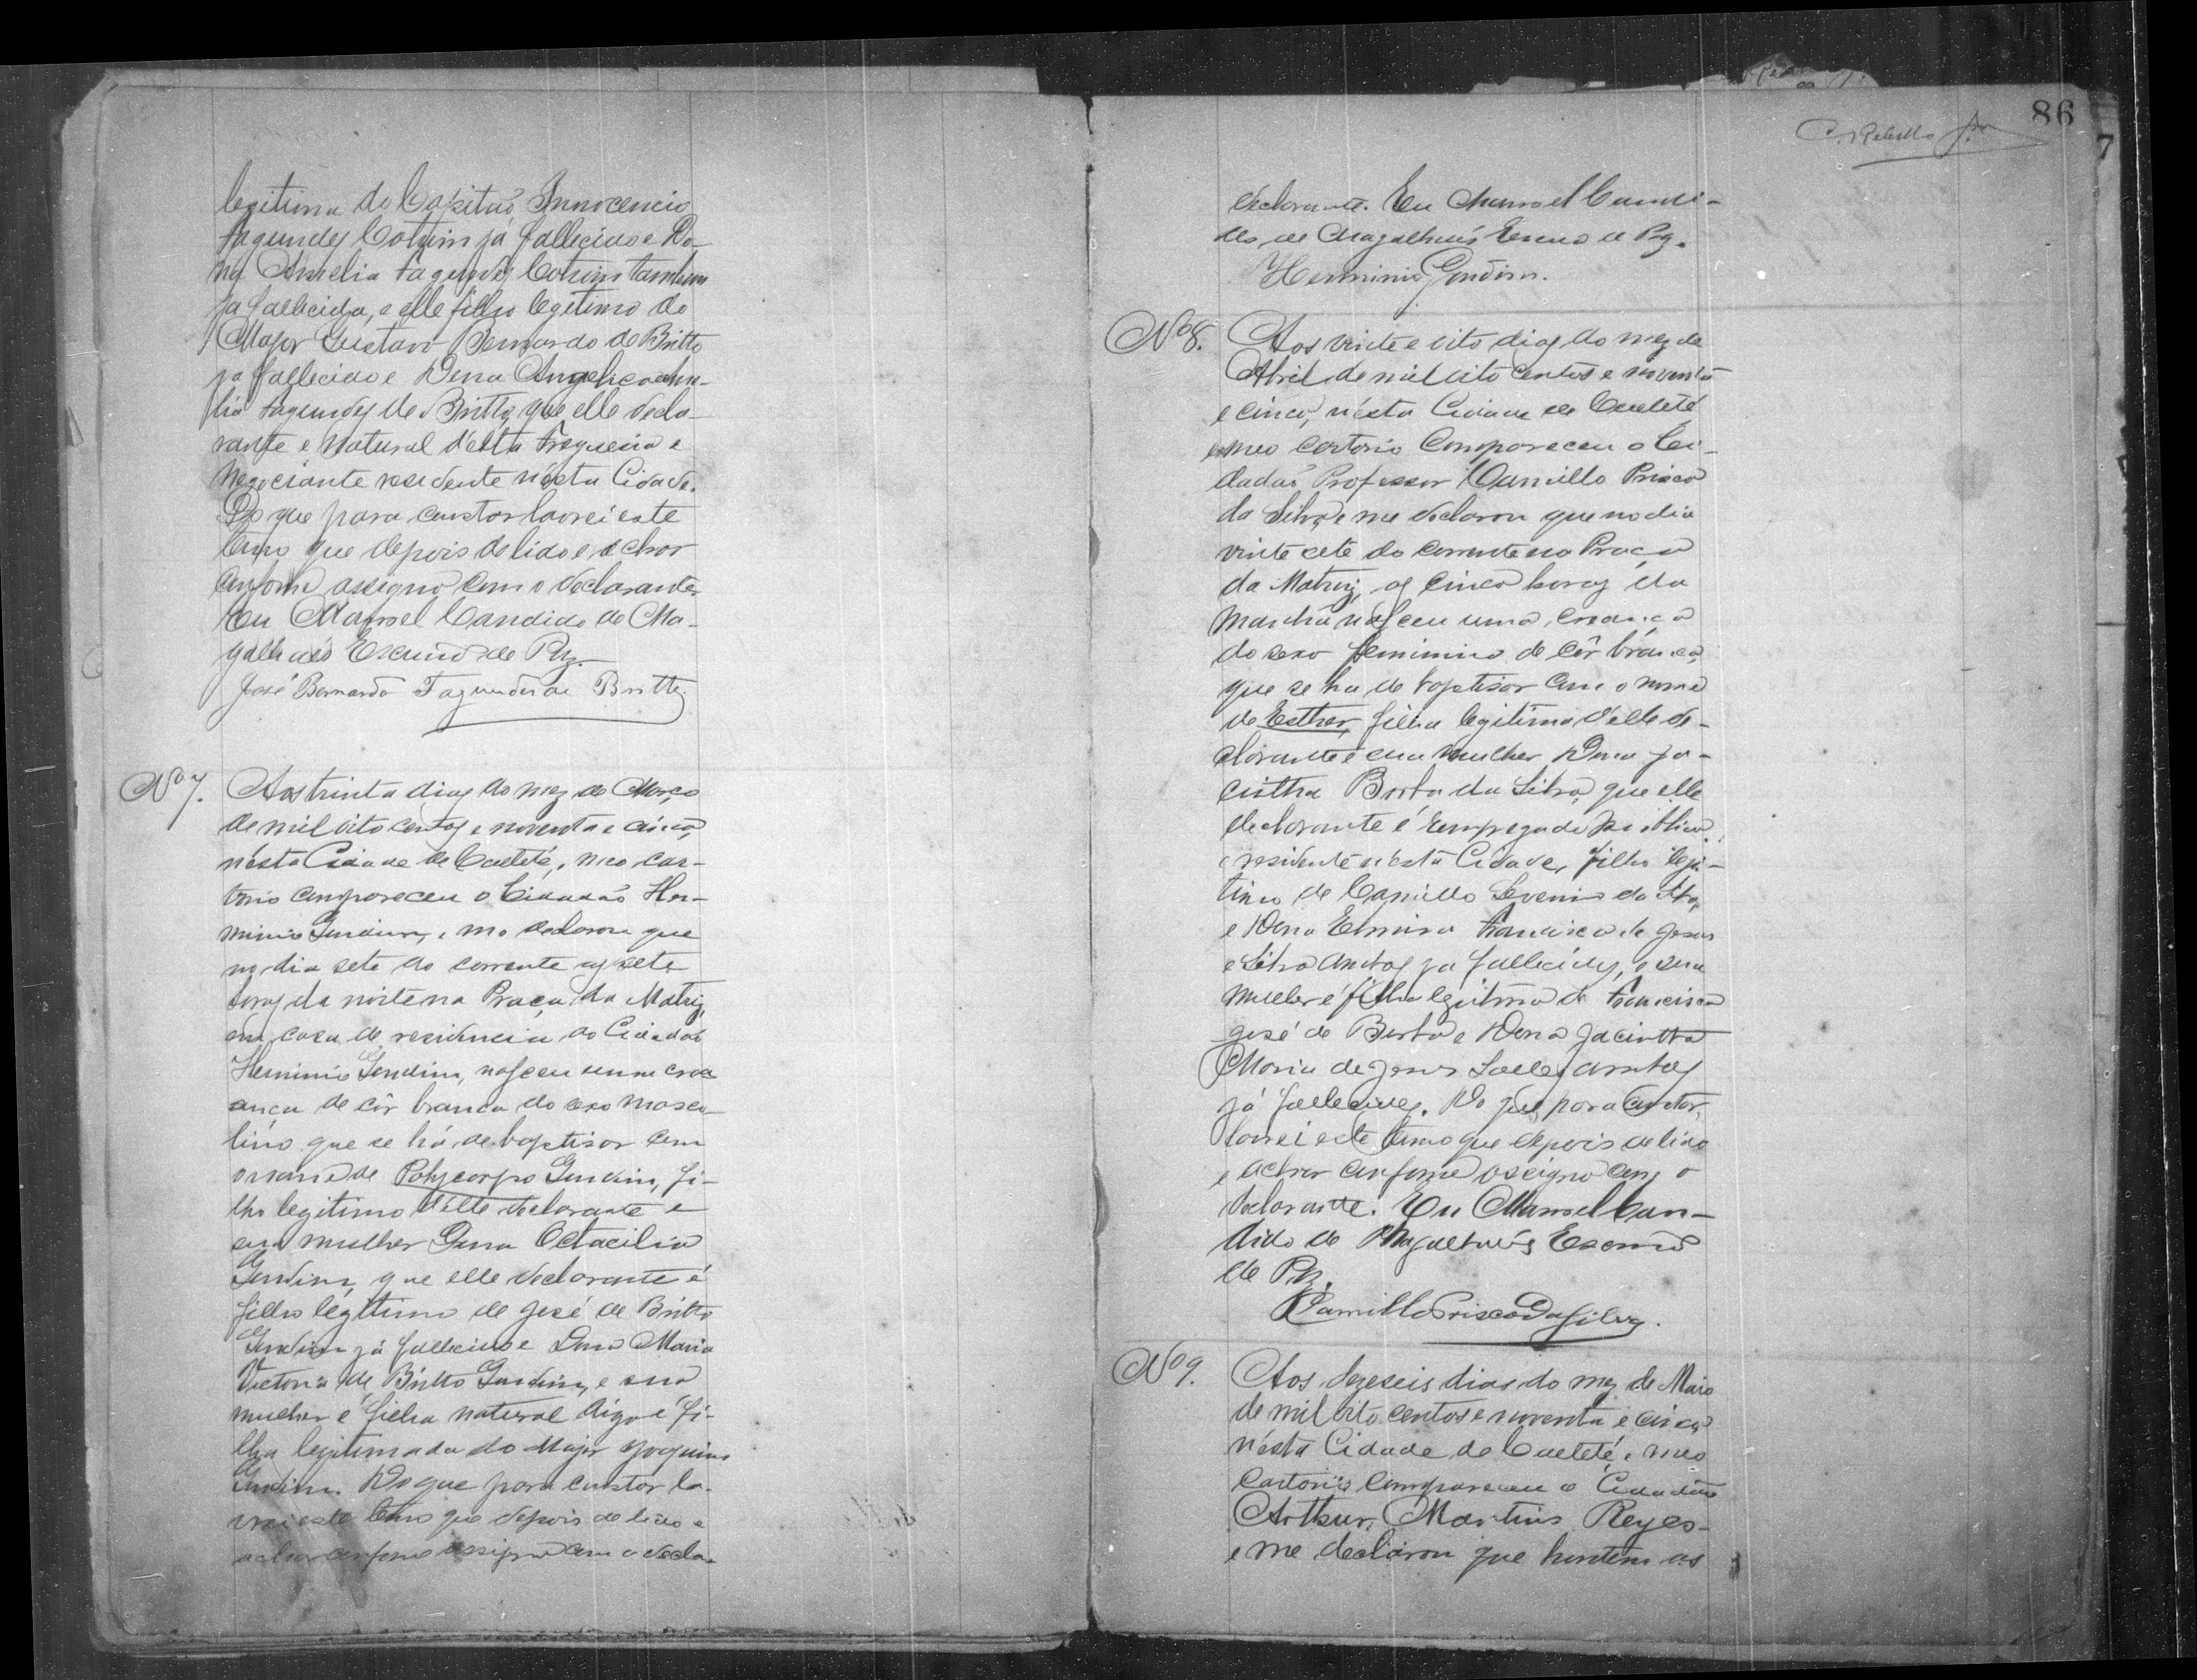 legitima do Capitaõ Innocencio
Fagundes Cotrim já fallecido e Do-
na Amelia Fagundes Cotrim tambem
ja fallecida, e elle filho legitimo do
Major Gustavo Bernardo de Britto
ja fallecido e Dona Angelica
Fagundes de Britto, que elle decla-
rante e natural d'esta Freguesia e
Negociante residente n'esta Cidade.
Do que para constar lavrei este
termo que depois de lido e achar
conforme assigno com o declarante.
Eu Manoel Candido de Ma-
galhaẽs Escrivaõ de Paz.
José Bernardo Fagundes de Britto
Nº 7. Aos trinta dias do mez de Março
de mil oito centos e noventa e cinco,
n'esta Cidade de Caeteté, meo car-
torio compareceu o Cidadaõ Her-
minio Gondim, e me declarou que
no dia sete do corrente as sete
horas da noite na Praça da Matriz,
em casa de residencia do Cidadaõ
Herminio Gondim, nasceu uma cre
ança de côr branca do sexo mascu
lino que se há de baptisar com
o nome de Polycarpo Gondim, fi-
lho legitimo d'elle declarante e
sua mulher Dona Octacilia
Gondim, que elle declarante é
filho legitimo de José de Britto
Gondim já fallecido e Dona Maria
Victoria de Britto Gondim, e sua
mulher é filha natural digo é fi-
lha legitimada do Major Joaquim
Gondim. Do que para constar la-
vrei este termo que depois de lido e
achar conforme assigno com o decla-
86
C. Rebello Jor
declarante. Eu Manoel Candi-
do de Magalhaẽs Escrivaõ de Paz.
Herminio Gondim.
Nº 8. Aos vinte e oito dias do mez de
Abril de mil oito centos e noventa
e cinco, n'esta Cidade de Caeteté
e meo cartorio Compareceu o Ci-
dadaõ Professor Camillo Prisco
da Silva e me declarou que no dia
vinte sete do corrente na Praça
da Matriz, as cinco horas da
manhã nasceu uma creança
do sexo feminino de côr branca,
que se ha de baptisar com o nome
de Esther, filha legitima d'elle de-
clarante e sua mulher Dona Ja-
cintha Borba da Silva, que elle
declarante é empregado publico
e residente n'esta Cidade, filho legi-
timo de Camillo da Silva,
e Dona Francisca de Jesus
e Silva ambos ja fallecidos, e sua
mulher é filha legitima de Francisco
José de Borba e Dona Jacintha
Maria de Jesus ambos
já fallecidos. Do que para constar,
lavrei este termo que depois de lido
e achar conforme assigno com o
declarante. Eu Manoel Can-
dido de Magalhaẽs Escrivaõ
de Paz.
Camillo Prisco Da Silva.
Nº 9. Aos dezeseis dias do mez de Maio
de mil oito centos e noventa e cinco,
n'esta Cidade de Caeteté, e meo
Cartorio compareceu o Cidadaõ
Arthur Martins Reyes
e me declarou que hontem as